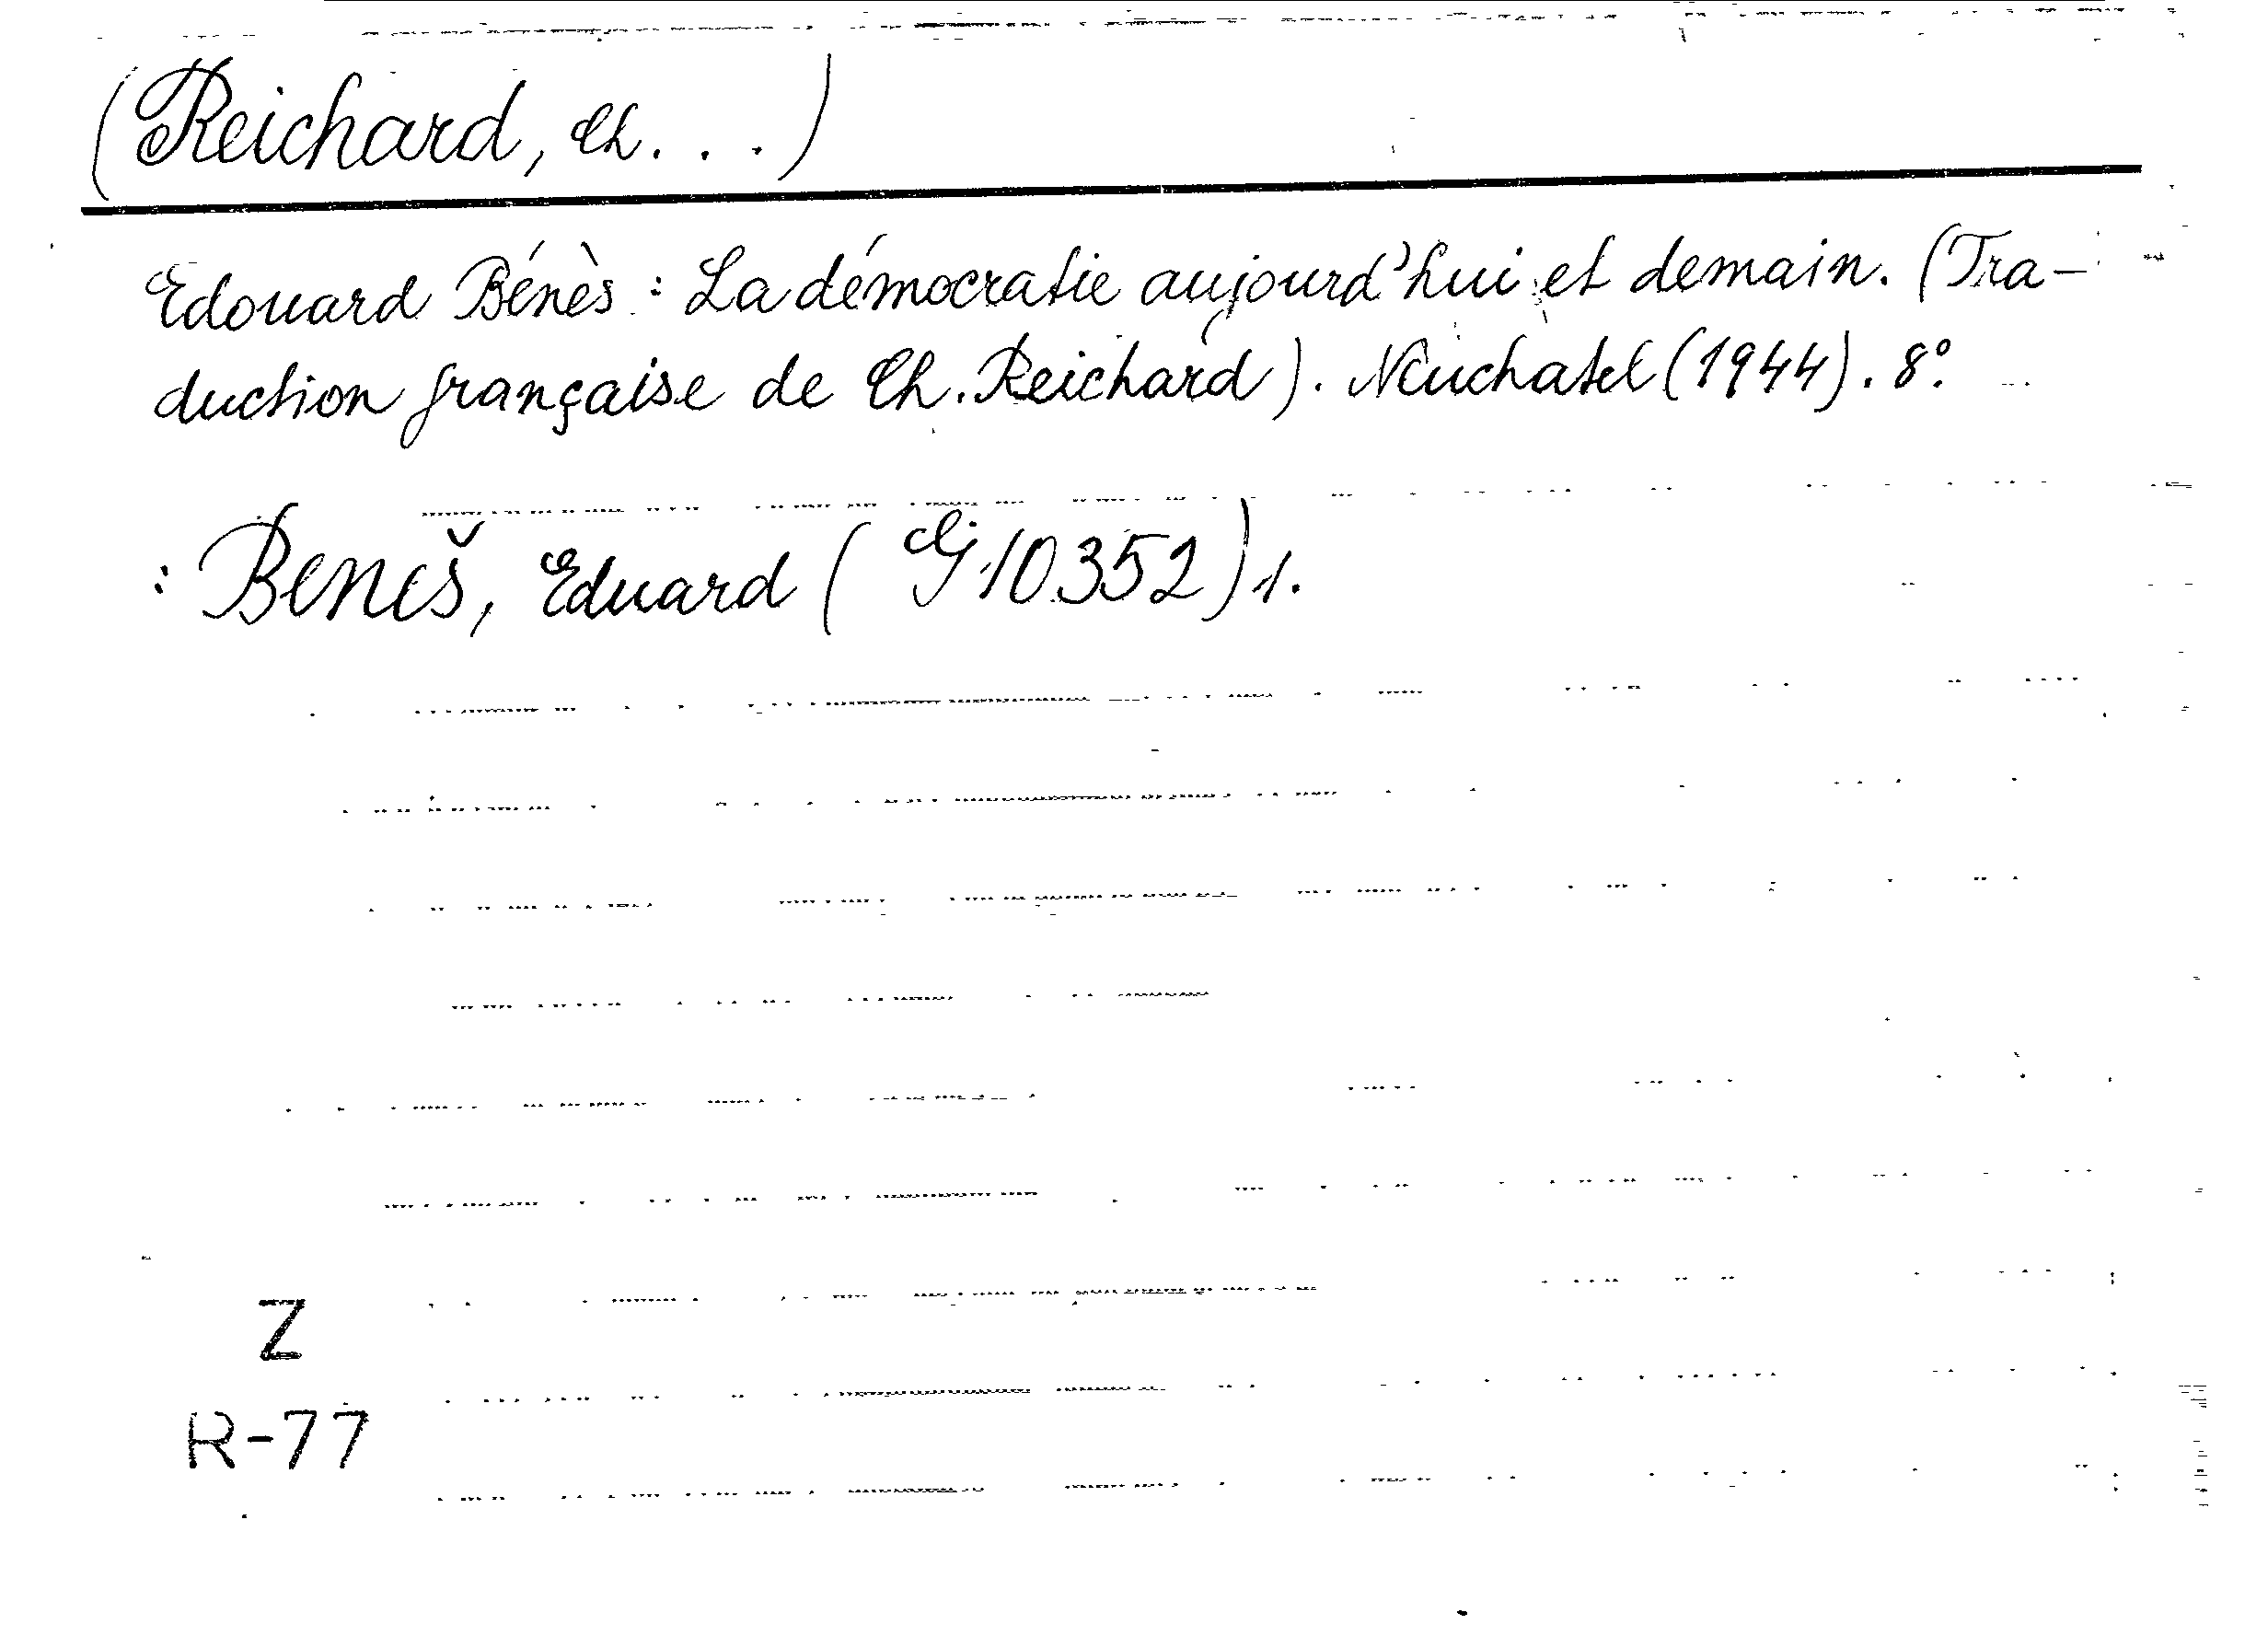 (Reichard, Ch. . .)
Edouard Bénès : La démocratie aujourd'hui et demain. (Tra-
duction française de Ch. Reichard). Neuchatel (1944). 8°.
: Beneš, Eduard (G 10352) 1.
Z
R-77